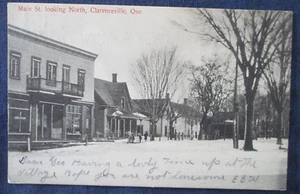 Main St. looking North, Clarenceville, Que
Dear Geo Having a lovly Time up at the
Village Hope you are not lonesome EB